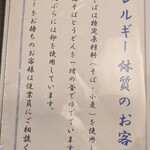 レルギー体質のお客
そばは特定原材料(そば・小麦)を使用し
そばとうどんを一緒の釜でゆでています
ぷらには卵を使用しています。
ーをお持ちのお客様は従業員にご相談く